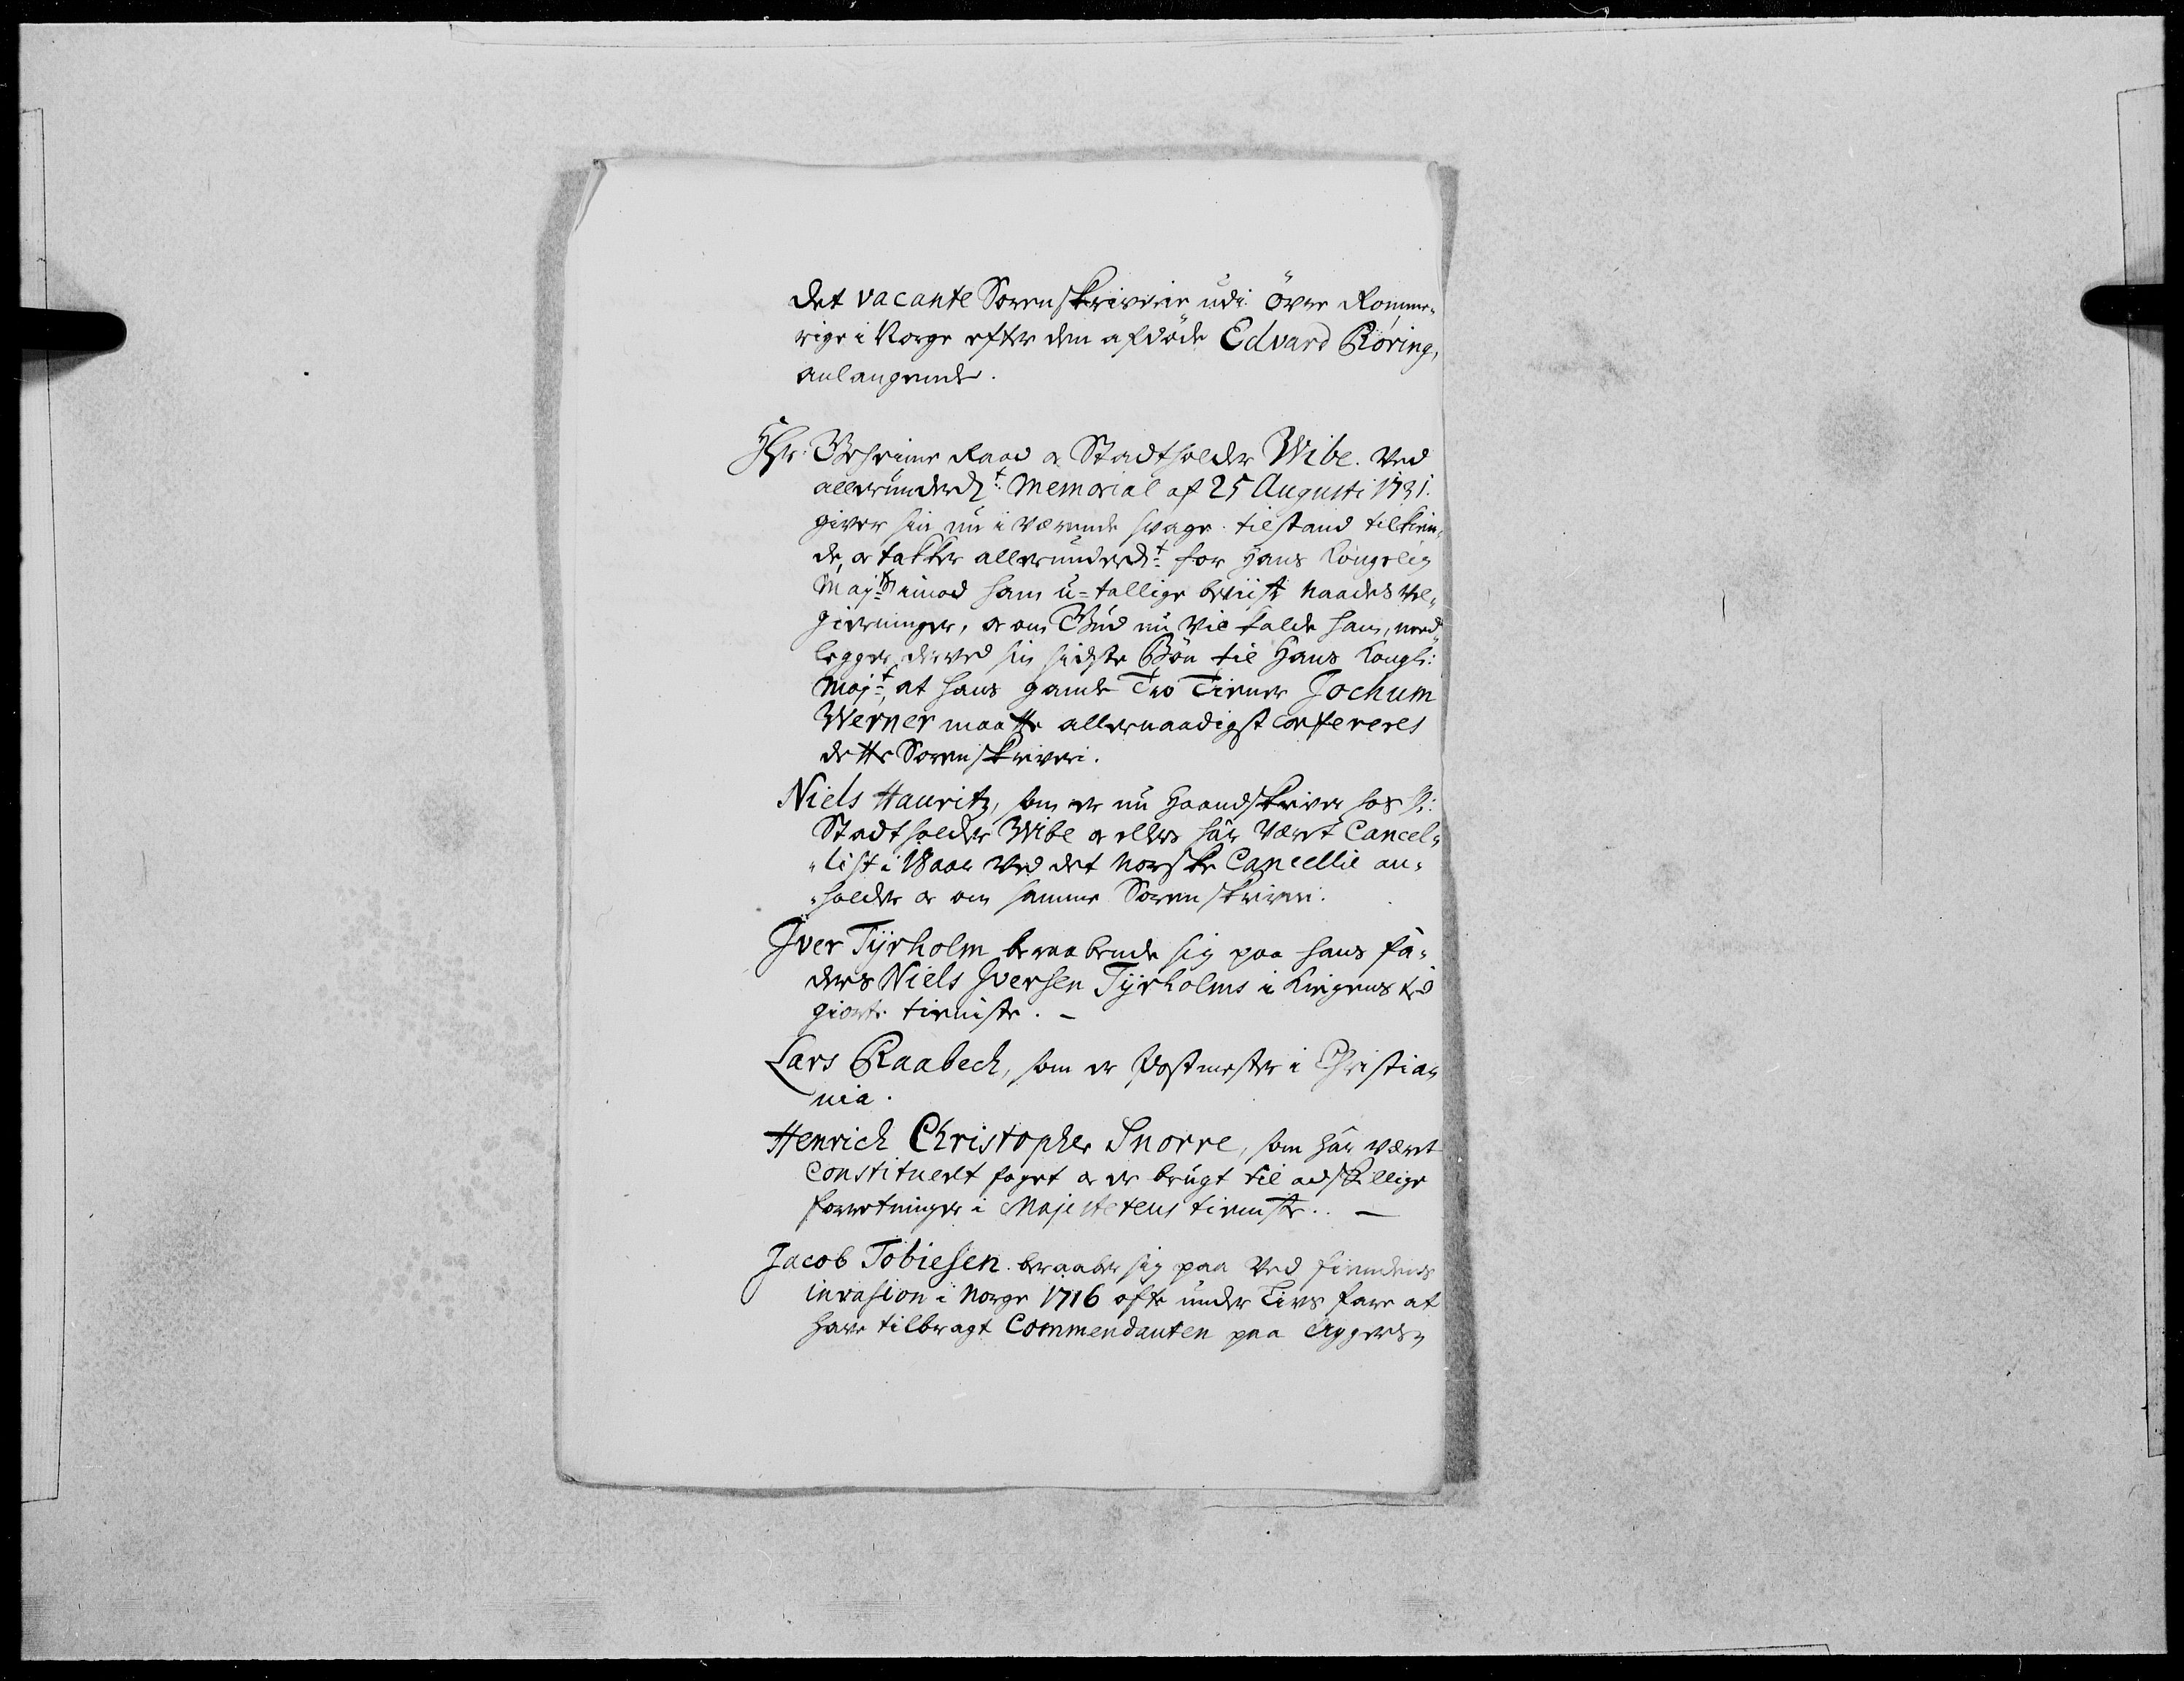 det vacante Sorenskriverie udi Övre Romme„
rige i Norge efter den afdöde Edvard Röring,
anlangende.
Hr: Geheime Raad og Stadtholder Wibe. Ved
allerunderd:t Memorial af 25 Augusti 1731.
giver sin nu i værende svage tilstand tilkien„
de, og takker allerunderd:t for Hans Kongelig
Maj:ts imod ham u-tallige beviiste Naades vel„
gierninger, og om Gud nu vil kalde ham, ned„
legger derved sin sidste Bön til Hans Kongl:
Maj:t, at hans gamle Tro Tiener Jochum
Werner maatte allernaadigst confereres
dette Sorenskriveri.
Niels Hauritz, som er nu Haandskriver hos H:
Stadtholder Wibe og ellers har været Cancel„
„list i 18 aar ved det Norske Cancellie an„
„holder og om samme Sorenskriveri.
Iver Tyrholm beraabende sig paa hans fa„
ders Niels Iversen Tyrholms i Krigens tid
giorte tieniste. –
Lars Raabech, som er Postmester i Christia„
nia.
Henrich Christopher Snorre, som har været
Constituert foget og er brugt til adskillige
forretninger i Majestetens tieniste. –
Jacob Tobiesen beraaber sig paa ved fiendens
invasion i Norge 1716 ofte under Livs fare at
have tilbragt Commendanten paa Aggers„